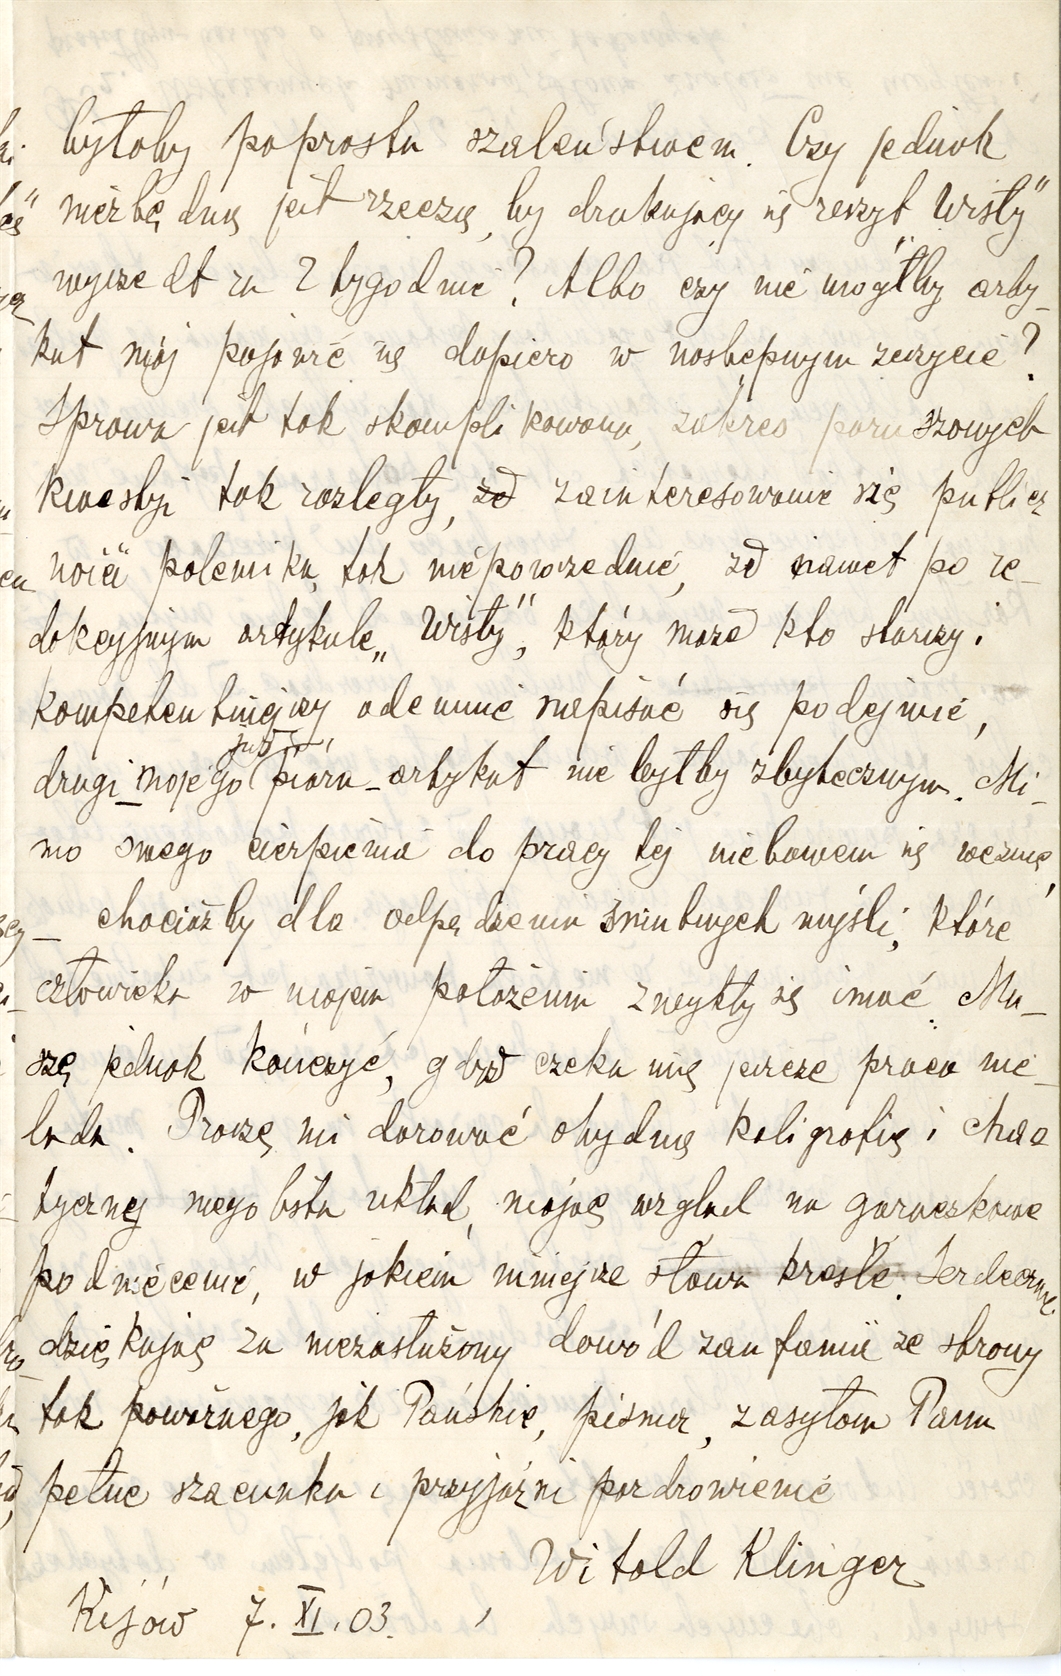 byłoby poprostu szaleństwem. Czy jednak
niezbędną jest rzeczą, by drukujący się zeszyt Wisły"
wyszedł za 2 tygodnie? Albo czy nie mógłby arty-
kuł mój pojawić się dopiero w następnym zeszycie?
Sprawa jest tak skomplikowana, zakres poruszonych
kwestyj tak rozległy, że zainteresowanie się publicz
ności polemiką, tak niepowszednie, że nawet po re-
dakcyjnym artykule „Wisły", który może kto starszy i
kompetentniejszy odemnie napisać się podejmie,
drugi_mojego już pióra_artykuł nie byłby zbytecznym. Mi-
mo swego cierpienia do pracy tej niebawem się wezmę,
_ chociażby dla odpędzenia smutnych myśli, które
człowieka w mojem położeniu zwykły się imać. Mu-
szę jednak kończyć, gdyż czeka mię jeszcze praca nie-
lada. Proszę mi darować ohydną kaligrafię i chao
tyczny mego listu układ, mając wzgląd na gorączkowe
podniecenie, w jakiem niniejsze słowa kreślę. Serdecznie
dziękując za niezasłużony dowód zaufania ze strony
tak poważnego, jak Pańskie, pisma, zasyłam Panu
pełne szacunku i przyjaźni pozdrowienie
Witold Klinger
Kijów 7. XI. 03.